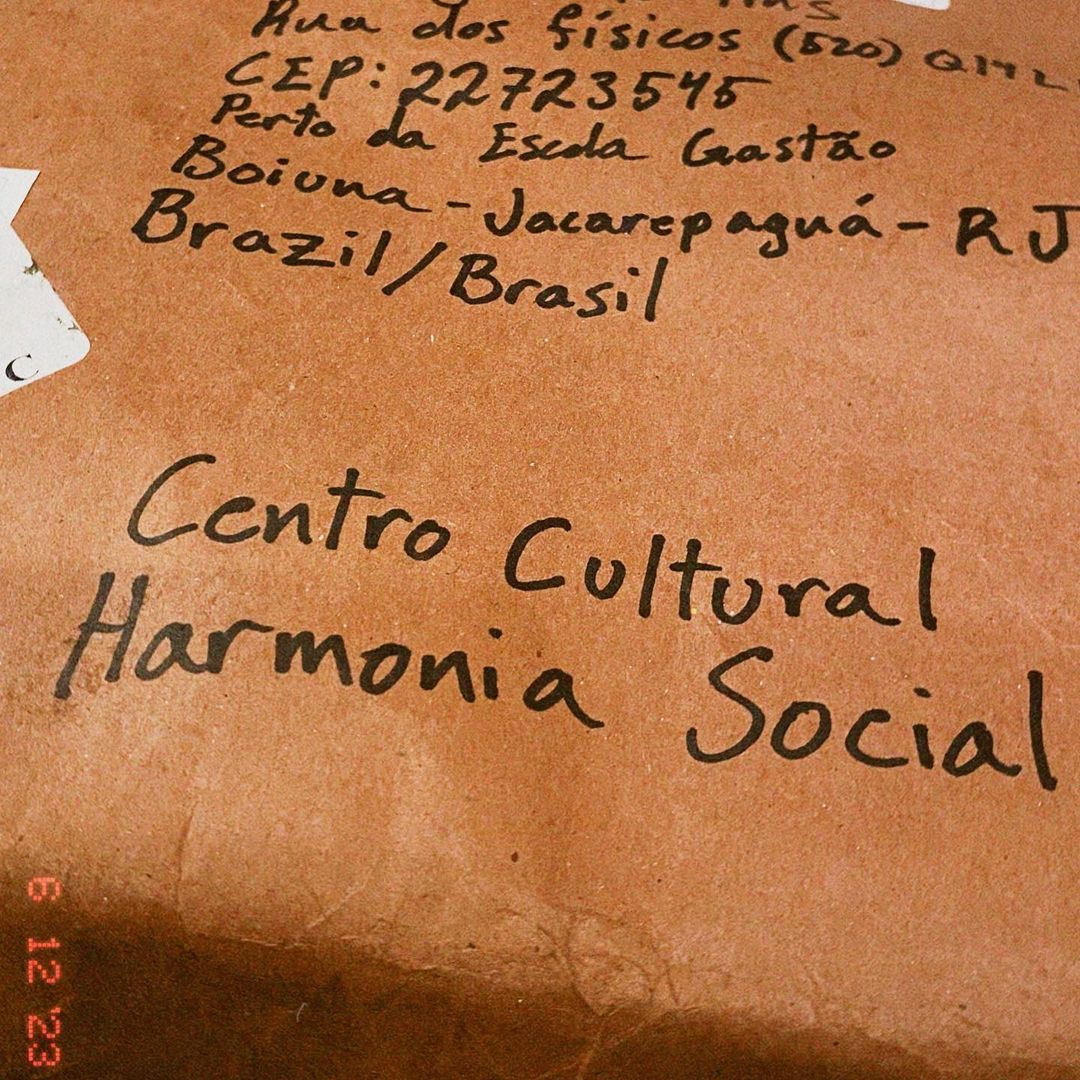 Rua dos físicos (520) Q142
CEP: 22723545
Perto da Escola Gastão
Boiuna - Jacarepaguá - RJ
Brazil/Brasil
C
Centro Cultural
Harmonia Social
6 12 '23